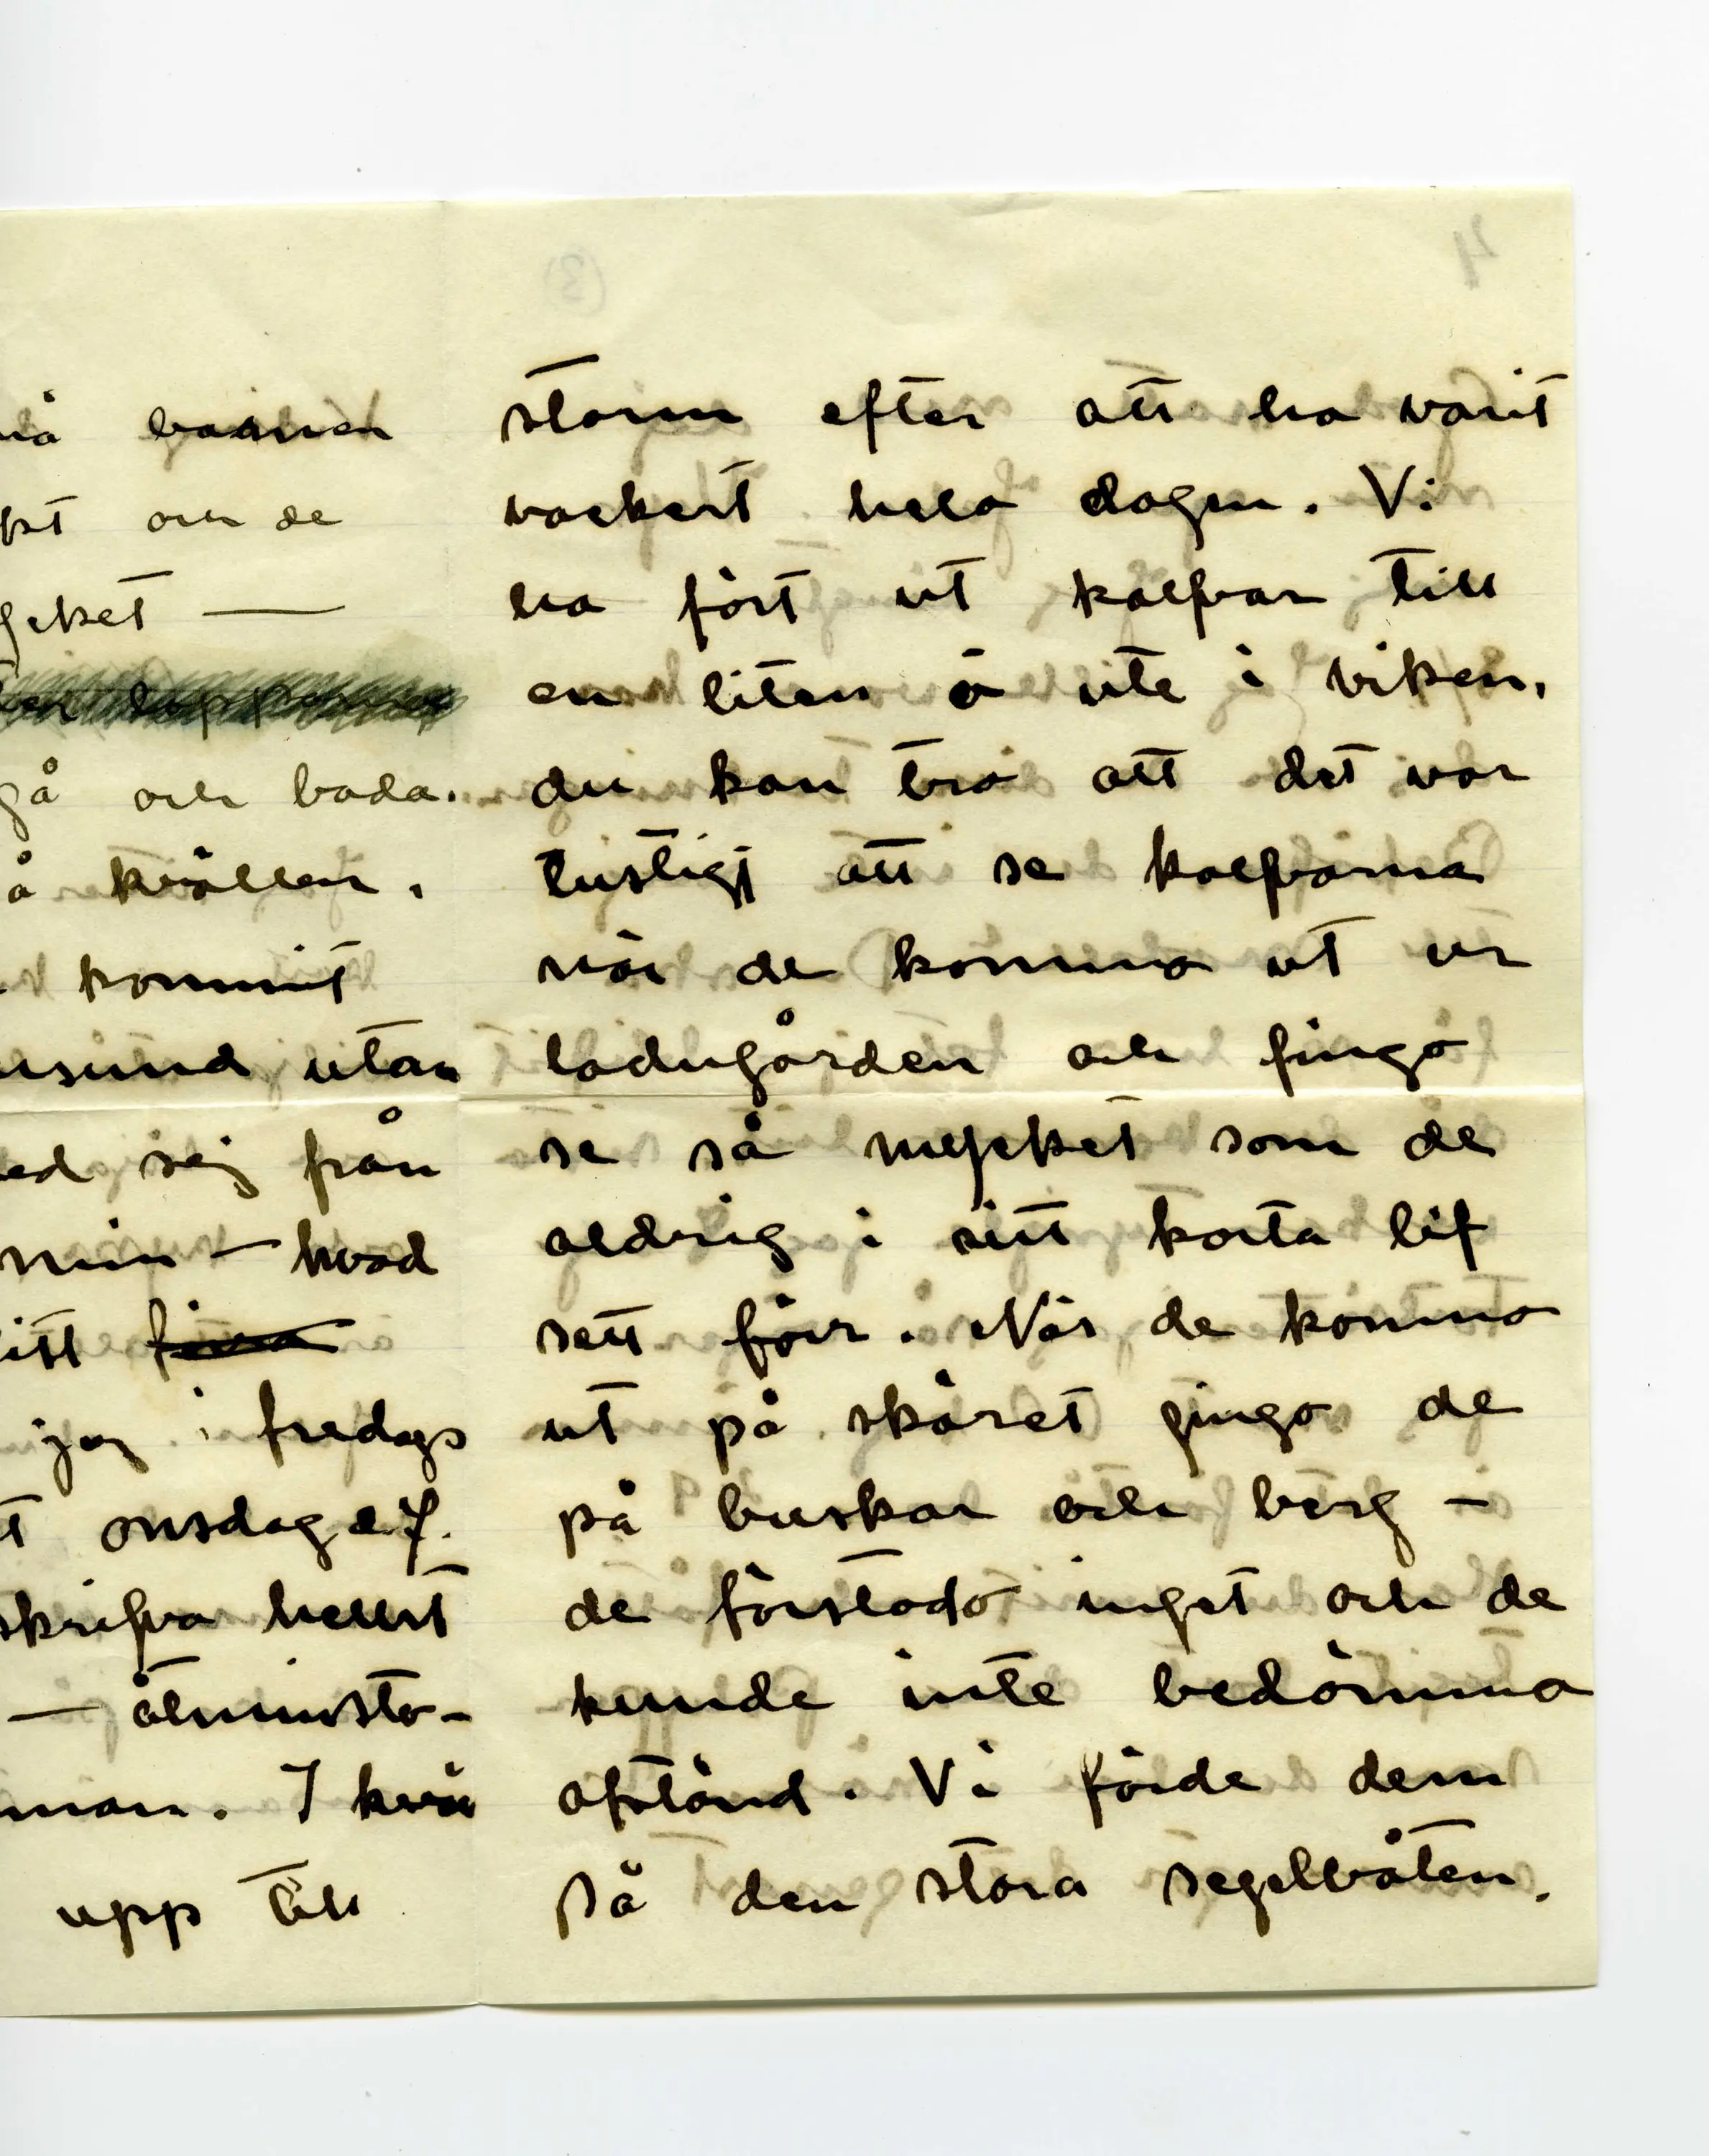 barnen
och de
gå och bada.
å kvällen.
kommit
utan
sig från
min — hvad
jag i fredags
onsdag e.f.
skrifva helst
— åtminsto-
man. I kvä
upp till
storm efter att ha varit
vackert hela dagen. Vi
ha fört ut kalfvar till
en liten ö ute i viken,
du kan tro att det var
lustigt att se kalfvarna
när de kommo ut ur
ladugården och fingo
se så mycket som de
aldrig i sitt korta lif
sett förr. När de kommo
ut på skäret gingo de
på buskar och berg —
de förstodo inget och de
kunde inte bedömma
afstånd. Vi förde dem
på den stora segelbåten.